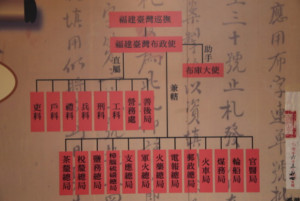 福建臺灣巡撫
福建臺灣布政使
助手
布庫大使
直屬
兼轄
吏科
戶科
禮科
兵科
刑科
工科
營務處
善後局
茶釐總局
稅釐總局
鹽務總局
支應總局
軍火總局
火藥總局
電報總局
郵政總局
火車局
煤務局
輪船局
官醫局